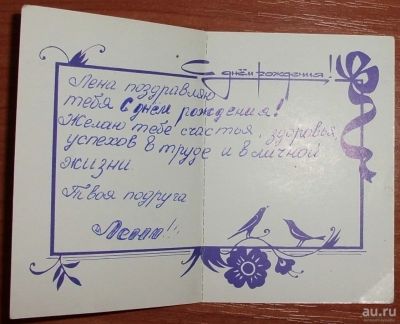 С днём рождения!
Лена поздравляю
тебя С днём рождения!
Желаю тебе счастья, здоровья
успехов в труде и в личной
жизни.
Твоя подруга
Лена!!!
au.ru